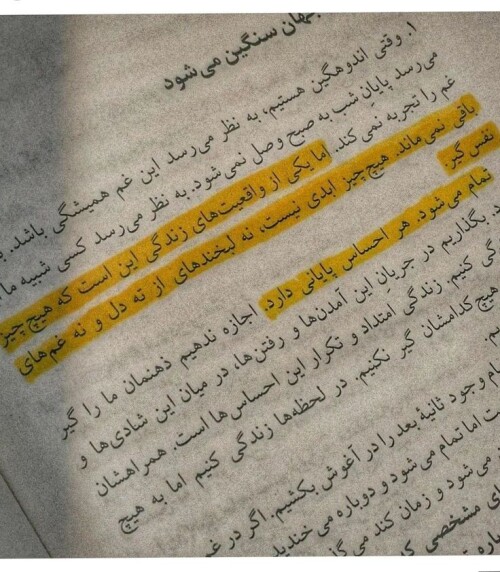 جهان سنگین می‌شود
۱. وقتی اندوهگین هستیم، به نظر می‌رسد این غم همیشگی باشد.
می‌رسد پایان شب به صبح وصل نمی‌شود. به نظر می‌رسد کسی شبیه ما
غم را تجربه نمی‌کند. اما یکی از واقعیت‌های زندگی این است که هیچ چیز
باقی نمی‌ماند. هیچ‌چیز ابدی نیست، نه لبخندهای از ته دل و نه غم‌های
نفس‌گیر
تمام می‌شود. هر احساس پایانی دارد. اجازه ندهیم ذهنمان ما را گیر
بگذاریم در جریان این آمدن‌ها و رفتن‌ها، در میان این شادی‌ها و
کنیم. زندگی امتداد و تکرار این احساس‌ها است. همراهشان
هیچ کدامشان گیر نکنیم. در لحظه‌ها زندگی کنیم اما به هیچ
وجود ثانیهٔ بعد را در آغوش بکشیم. اگر در
اما تمام می‌شود و دوباره می‌خندید
می‌شود و زمان کند
مشخصی